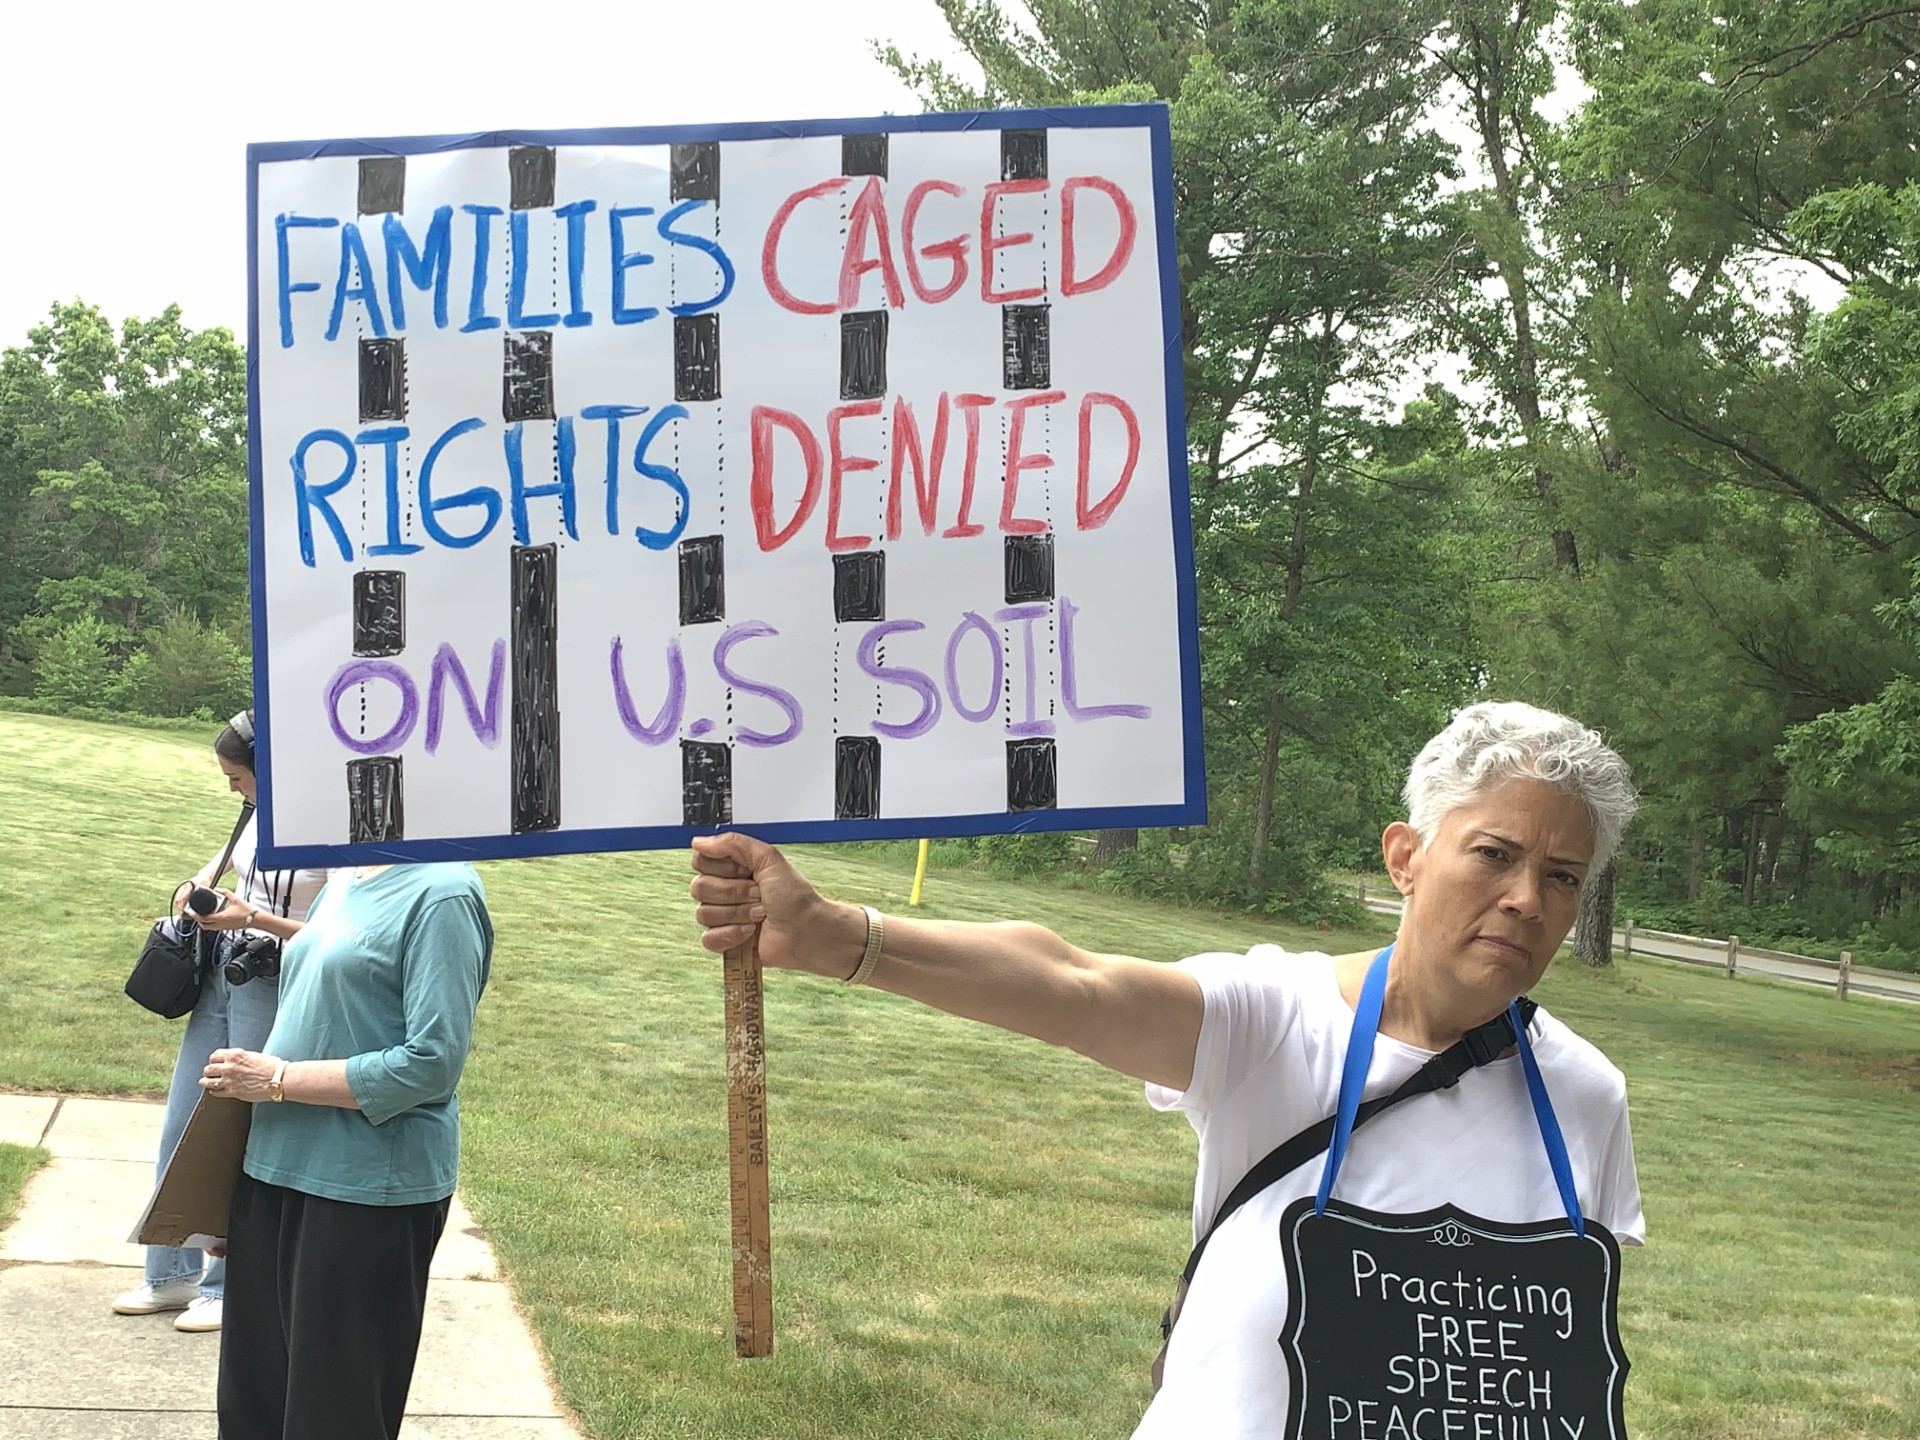 FAMILIES CAGED
RIGHTS DENIED
ON U.S SOIL
BAILEY'S HARDWARE
Practicing
FREE
SPEECH
PEACEFULLY